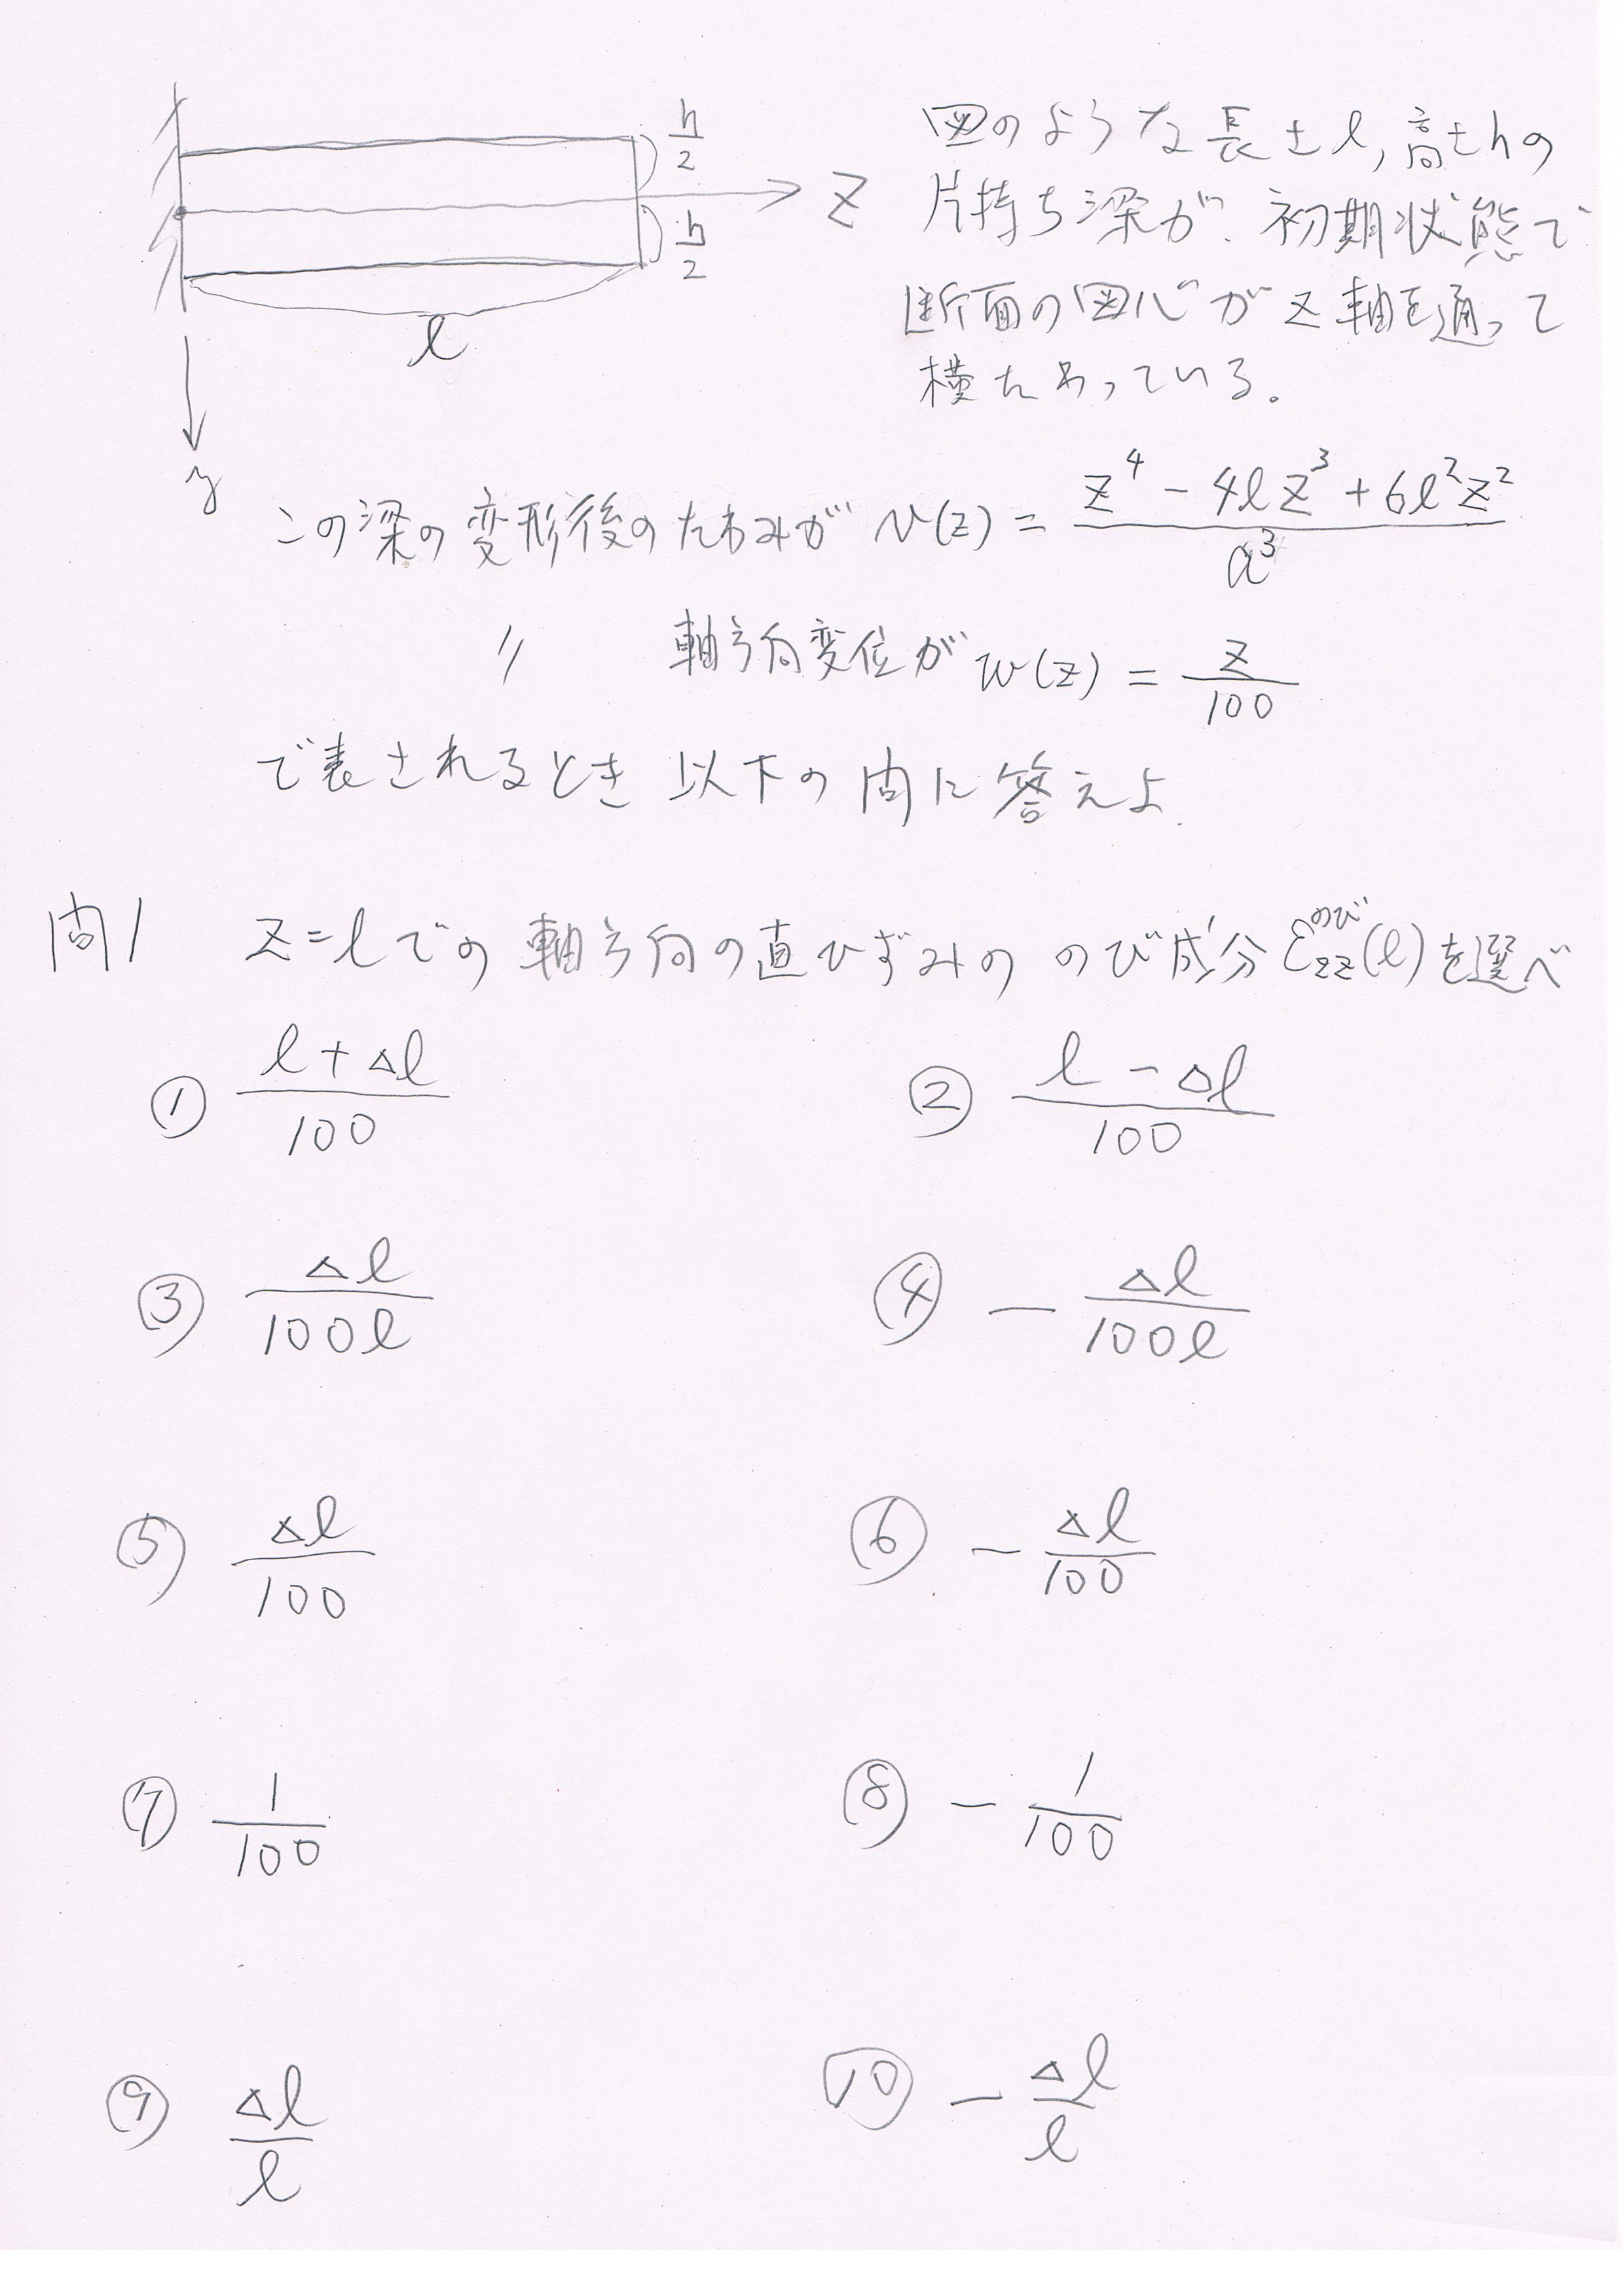 h/2
h/2
z
l
y
図のような長さl,高さhの
片持ち梁が、初期状態で
断面の図心がz軸を通って
横たわっている。
この梁の変形後のたわみが v(z) = (z^4 - 4lz^3 + 6l^2z^2)/a^3
〃 軸方向変位が w(z) = z/100
で表されるとき 以下の問に答えよ.
問1 z=lでの軸方向の直ひずみの のび成分 ε_zz^のび(l)を選べ
① (l+Δl)/100 ② (l-Δl)/100
③ Δl/100l ④ -Δl/100l
⑤ Δl/100 ⑥ -Δl/100
⑦ 1/100 ⑧ -1/100
⑨ Δl/l ⑩ -Δl/l